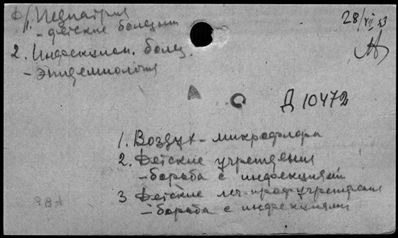 1. Педиатрия
- детские болезни
28/VI 53
2. Инфекцион. болез.
- Эпидемиология
А О
Д 10472
1. Воздух - микрофлора
2. Детские учреждения
- борьба с инфекциями
3 Детские леч-проф учрежден
- борьба с инфекциями